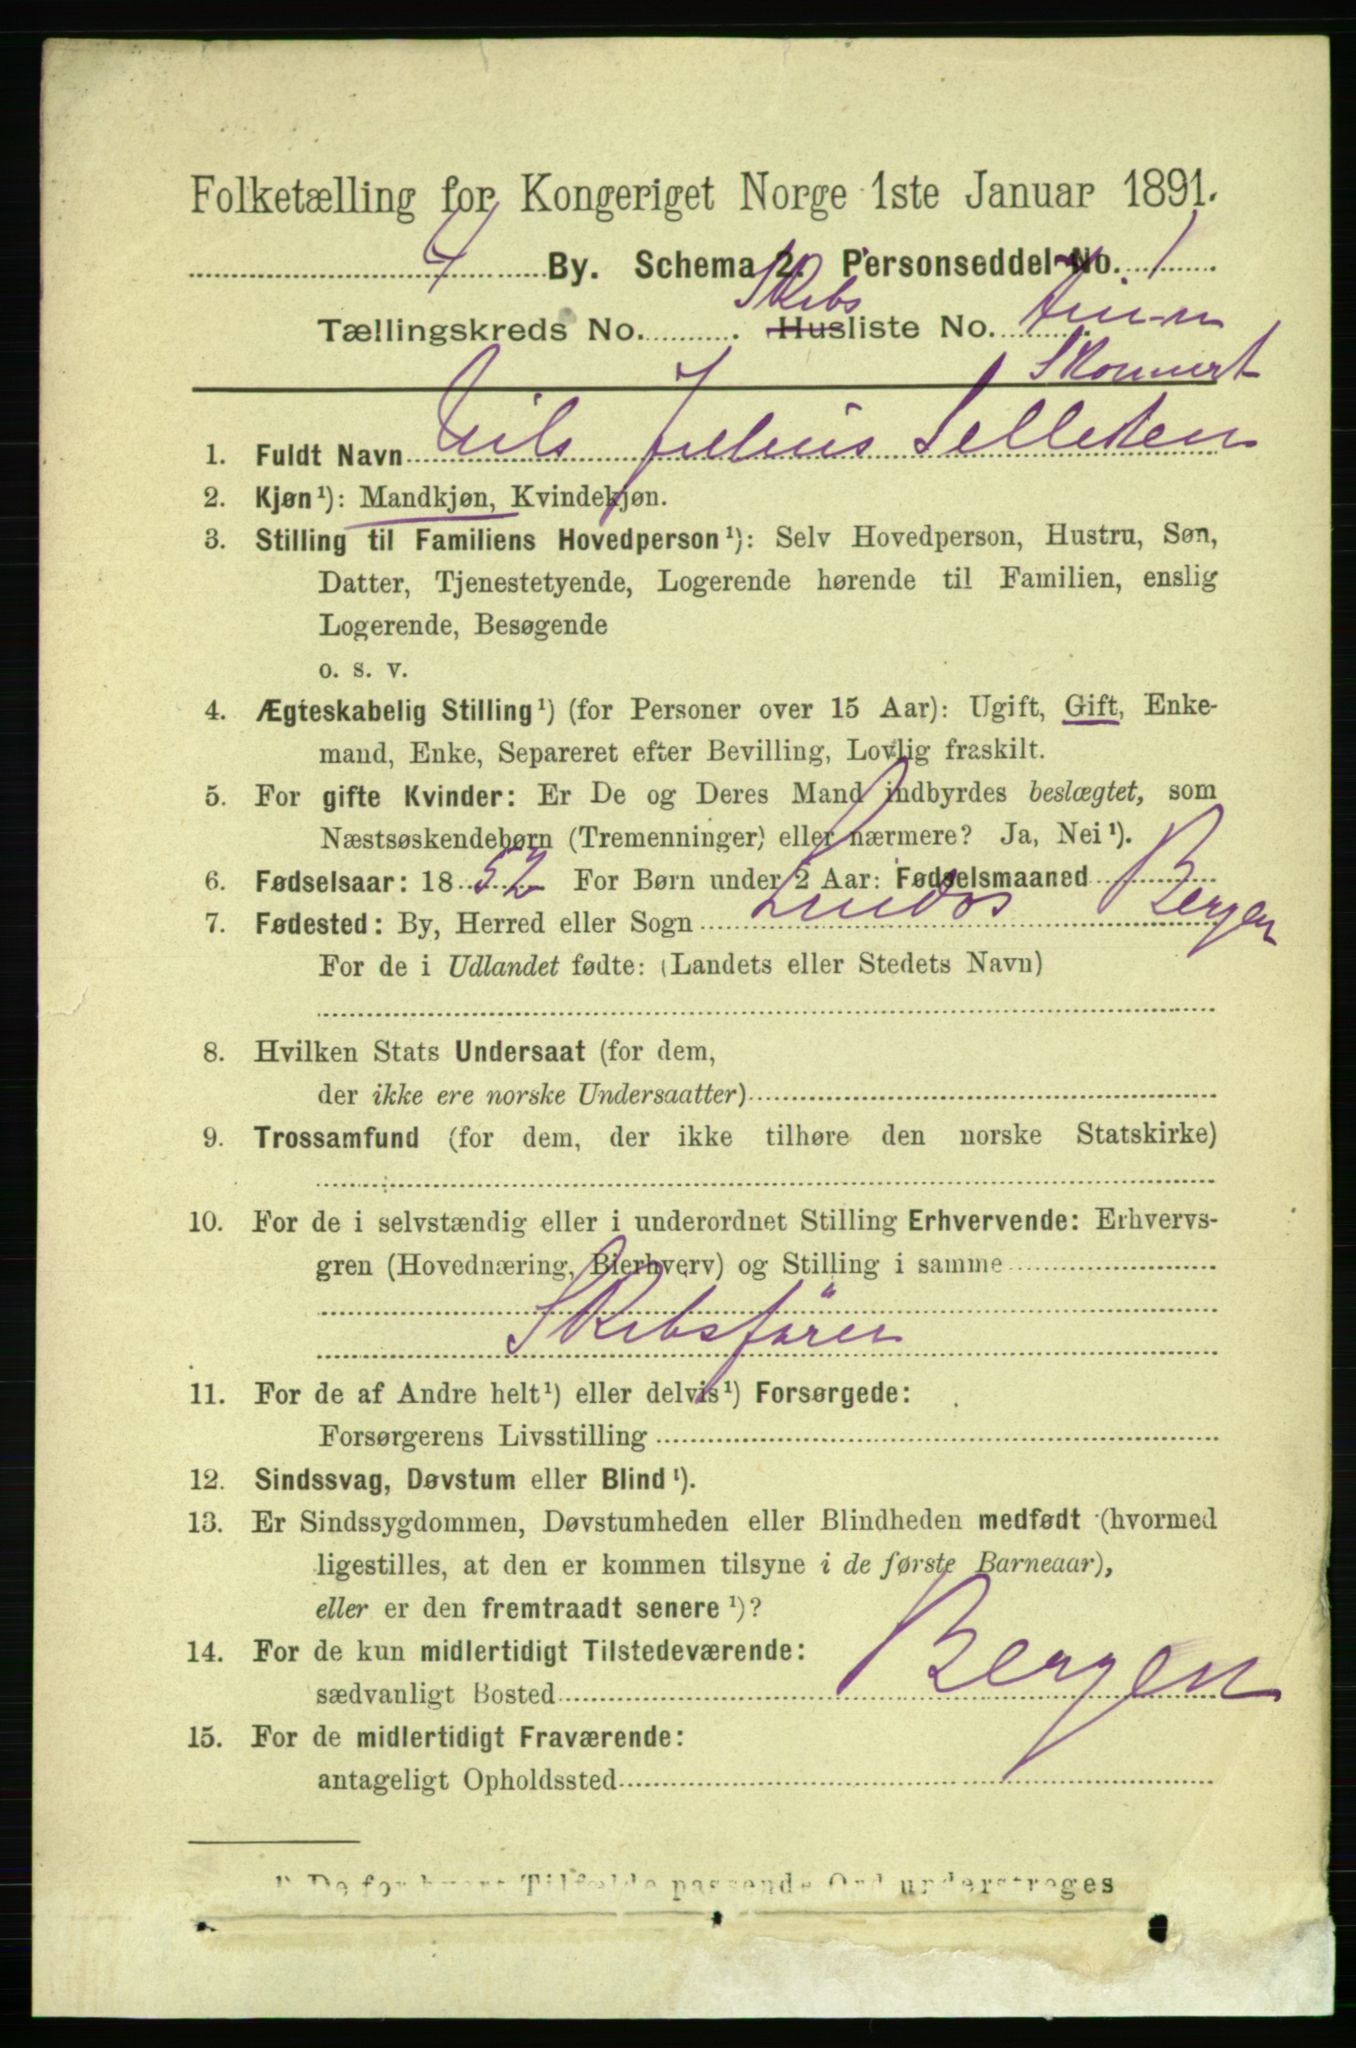 Folketælling for Kongeriget Norge 1ste Januar 1891.
By. Schema 2. Personseddel No. 1
Tællingskreds No. . Skibs Husliste No.
Skonnert
1. Fuldt Navn Nils Julius Selleken
2. Kjøn¹): Mandkjøn, Kvindekjøn.
3. Stilling til Familiens Hovedperson¹): Selv Hovedperson, Hustru, Søn,
Datter, Tjenestetyende, Logerende hørende til Familien, enslig
Logerende, Besøgende
o. s. v.
4. Ægteskabelig Stilling¹) (for Personer over 15 Aar): Ugift, Gift, Enke-
mand, Enke, Separeret efter Bevilling, Lovlig fraskilt.
5. For gifte Kvinder: Er De og Deres Mand indbyrdes beslægtet, som
Næstsøskendebørn (Tremenninger) eller nærmere? Ja, Nei¹).
6. Fødselsaar: 1852 For Børn under 2 Aar: Fødselsmaaned
7. Fødested: By, Herred eller Sogn Lindos Bergen
For de i Udlandet fødte: (Landets eller Stedets Navn)
8. Hvilken Stats Undersaat (for dem,
der ikke ere norske Undersaatter)
9. Trossamfund (for dem, der ikke tilhøre den norske Statskirke)
10. For de i selvstændig eller i underordnet Stilling Erhvervende: Erhvervs-
gren (Hovednæring, Bierhverv) og Stilling i samme
Skibsförer
11. For de af Andre helt¹) eller delvis¹) Forsørgede:
Forsørgerens Livsstilling
12. Sindssvag, Døvstum eller Blind¹).
13. Er Sindssygdommen, Døvstumheden eller Blindheden medfødt (hvormed
ligestilles, at den er kommen tilsyne i de første Barneaar),
eller er den fremtraadt senere¹)?
14. For de kun midlertidigt Tilstedeværende:
sædvanligt Bosted Bergen
15. For de midlertidigt Fraværende:
antageligt Opholdssted
¹) De for hvert Tilfælde passende Ord understreges